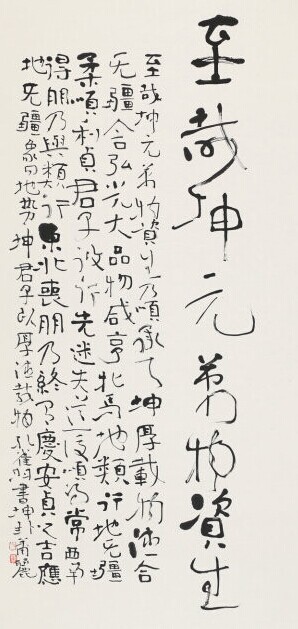 至哉坤元萬物資生
至哉坤元萬物資生乃順承天坤厚載物德合
无疆含弘光大品物咸亨牝馬地類行地无疆
柔順利貞君子攸行先迷失道後順得常西南
得朋乃與類行東北喪朋乃終有慶安貞之吉應
地无疆象曰地勢坤君子以厚德載物書坤卦